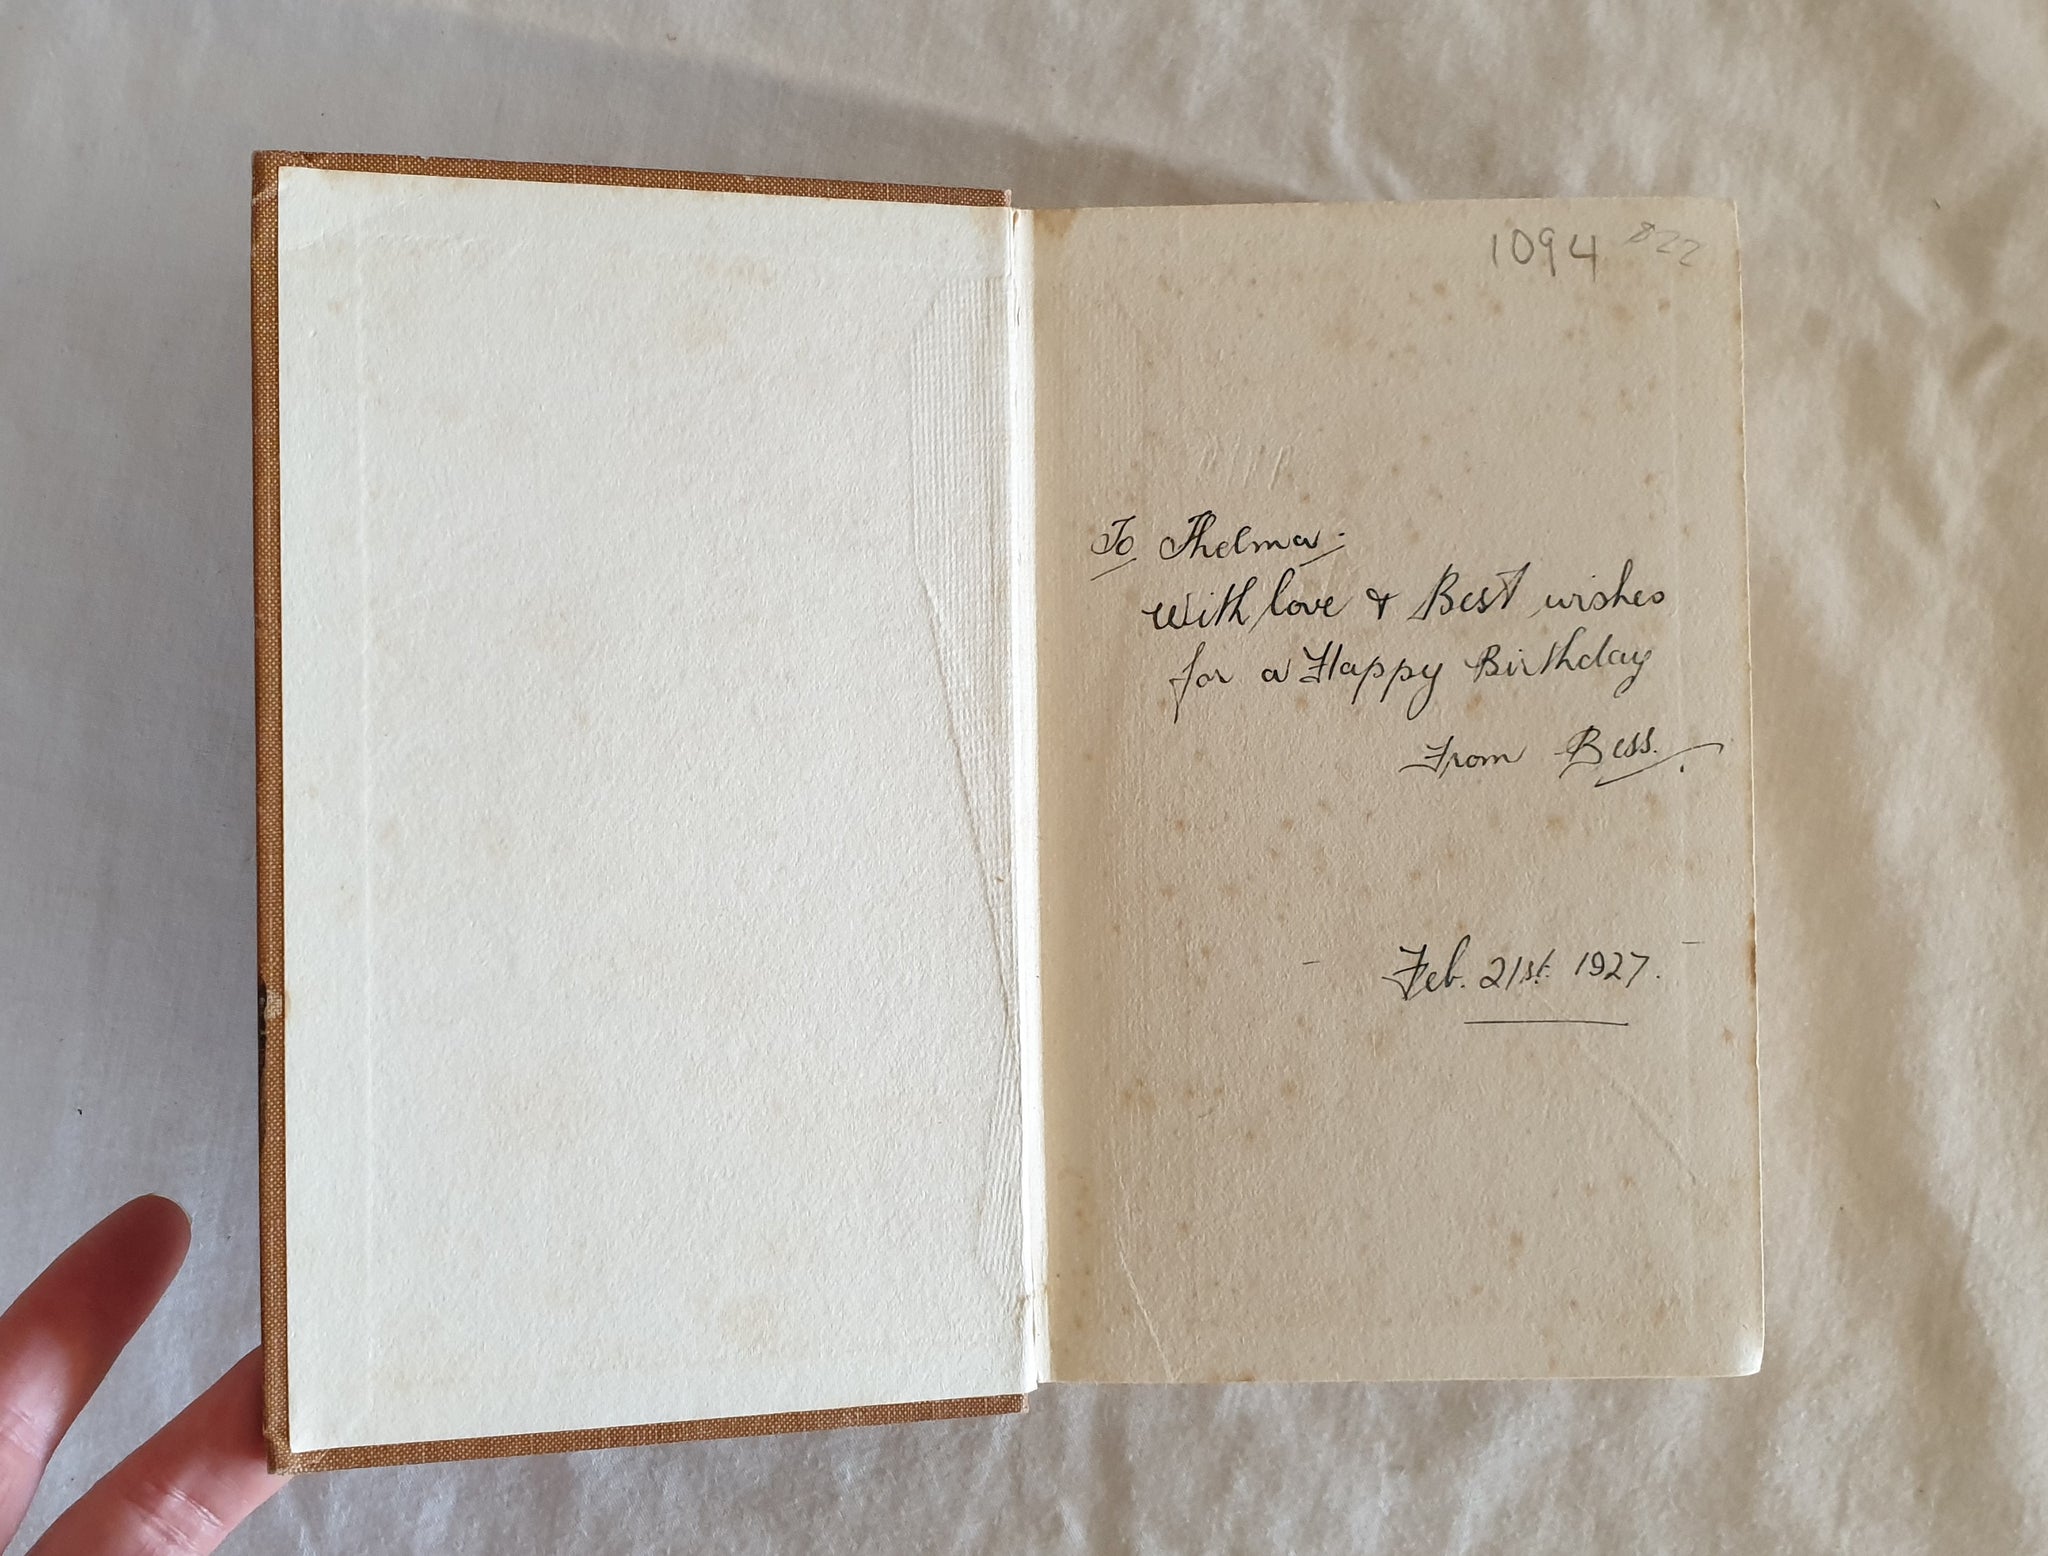 1094 $22
To Thelma.
With love & Best wishes
for a Happy Birthday
From Bess.
Feb. 21st. 1927.